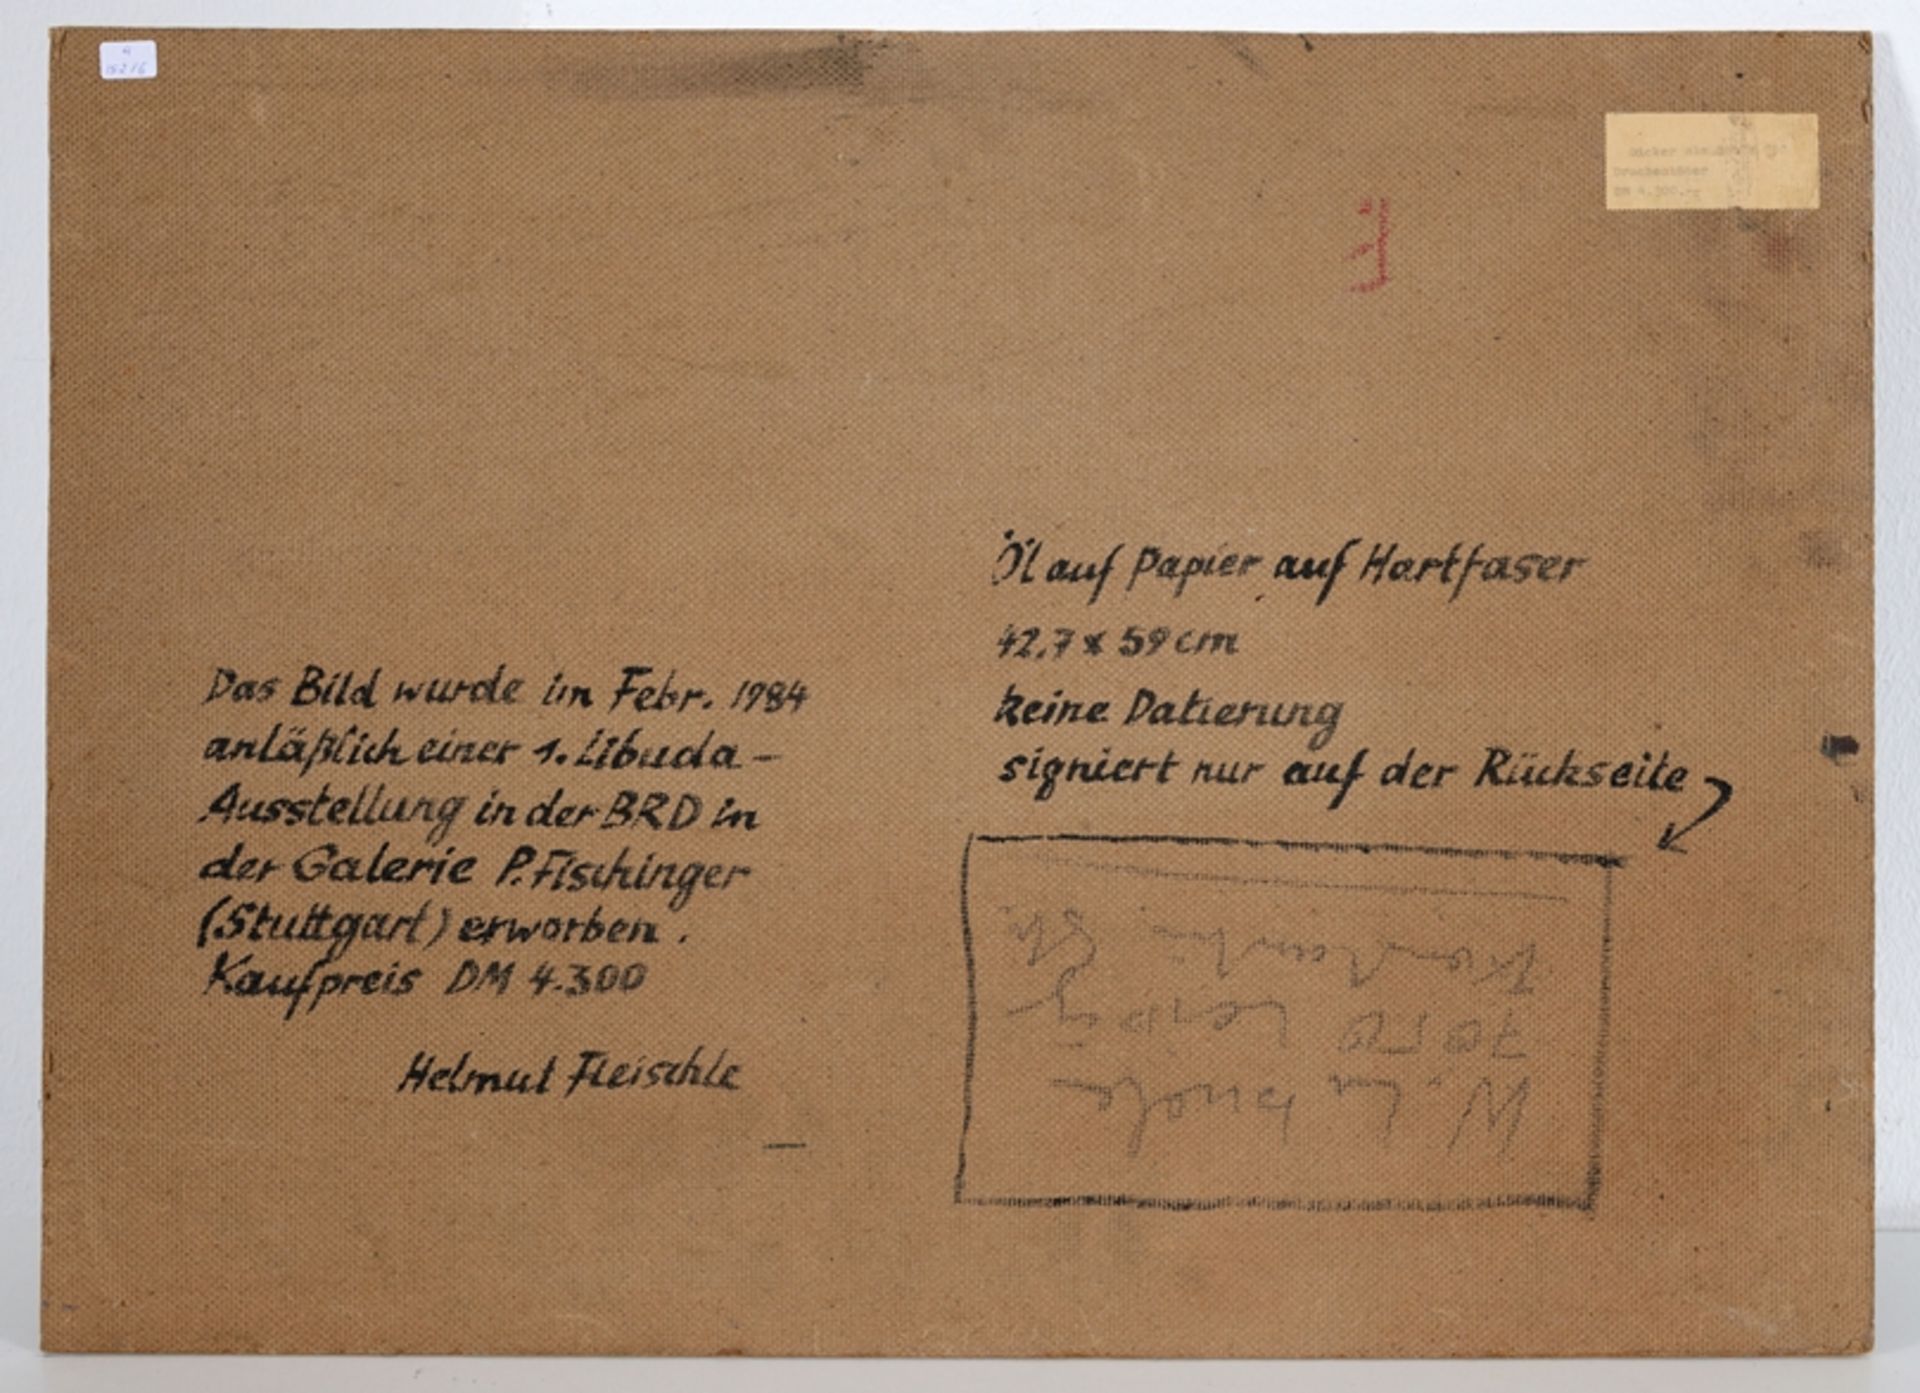 DM 4.300.--
Öl auf Papier auf Hartfaser
42,7 x 59 cm
keine Datierung
signiert nur auf der Rückseite
Das Bild wurde im Febr. 1984
anläßlich einer 1. Libuda-
Ausstellung in der BRD in
der Galerie P. Fischinger
(Stuttgart) erworben.
Kaufpreis DM 4.300
Helmut Fleischle
W. Libuda
7050 Leipzig